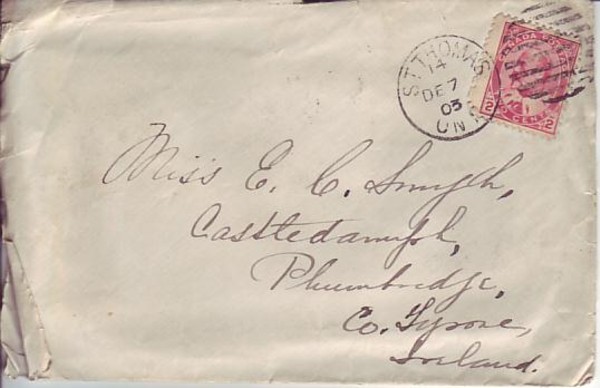 ST THOMAS
14
DE 7
03
ON
CANADA POSTAGE
2 CENTS 2
Miss E. C. Smyth,
Castledamph,
Plumbridge,
Co. Tyrone,
Ireland.